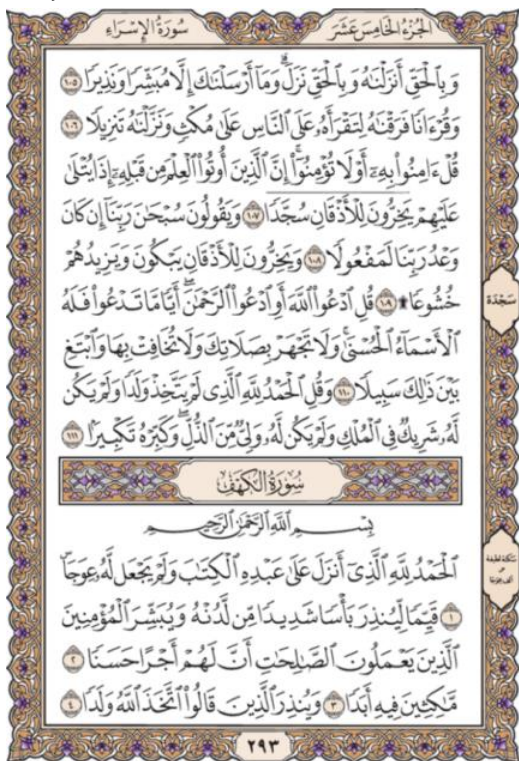 الجُزْءُ الخَامِسَ عَشَرَ
سُورَةُ الإِسْرَاءِ
وَبِالْحَقِّ أَنزَلْنَٰهُ وَبِالْحَقِّ نَزَلَ ۗ وَمَآ أَرْسَلْنَٰكَ إِلَّا مُبَشِّرًا وَنَذِيرًا ١٠٥
وَقُرْءَانًا فَرَقْنَٰهُ لِتَقْرَأَهُۥ عَلَى ٱلنَّاسِ عَلَىٰ مُكْثٍ وَنَزَّلْنَٰهُ تَنزِيلًا ١٠٦
قُلْ ءَامِنُوا۟ بِهِۦٓ أَوْ لَا تُؤْمِنُوٓا۟ ۚ إِنَّ ٱلَّذِينَ أُوتُوا۟ ٱلْعِلْمَ مِن قَبْلِهِۦٓ إِذَا يُتْلَىٰ
عَلَيْهِمْ يَخِرُّونَ لِلْأَذْقَانِ سُجَّدًا ١٠٧ وَيَقُولُونَ سُبْحَٰنَ رَبِّنَآ إِن كَانَ
وَعْدُ رَبِّنَا لَمَفْعُولًا ١٠٨ وَيَخِرُّونَ لِلْأَذْقَانِ يَبْكُونَ وَيَزِيدُهُمْ
خُشُوعًا ۩ ١٠٩ قُلِ ٱدْعُوا۟ ٱللَّهَ أَوِ ٱدْعُوا۟ ٱلرَّحْمَٰنَ ۖ أَيًّا مَّا تَدْعُوا۟ فَلَهُ
ٱلْأَسْمَآءُ ٱلْحُسْنَىٰ ۚ وَلَا تَجْهَرْ بِصَلَاتِكَ وَلَا تُخَافِتْ بِهَا وَٱبْتَغِ
بَيْنَ ذَٰلِكَ سَبِيلًا ١١٠ وَقُلِ ٱلْحَمْدُ لِلَّهِ ٱلَّذِى لَمْ يَتَّخِذْ وَلَدًا وَلَمْ يَكُن
لَّهُۥ شَرِيكٌ فِى ٱلْمُلْكِ وَلَمْ يَكُن لَّهُۥ وَلِىٌّ مِّنَ ٱلذُّلِّ ۖ وَكَبِّرْهُ تَكْبِيرًۢا ١١١
سَجْدَة
سُورَةُ الكَهْفِ
بِسْمِ ٱللَّهِ ٱلرَّحْمَٰنِ ٱلرَّحِيمِ
ٱلْحَمْدُ لِلَّهِ ٱلَّذِىٓ أَنزَلَ عَلَىٰ عَبْدِهِ ٱلْكِتَٰبَ وَلَمْ يَجْعَل لَّهُۥ عِوَجَا ۜ
١ قَيِّمًا لِّيُنذِرَ بَأْسًا شَدِيدًا مِّن لَّدُنْهُ وَيُبَشِّرَ ٱلْمُؤْمِنِينَ
ٱلَّذِينَ يَعْمَلُونَ ٱلصَّٰلِحَٰتِ أَنَّ لَهُمْ أَجْرًا حَسَنًا ٢
مَّٰكِثِينَ فِيهِ أَبَدًا ٣ وَيُنذِرَ ٱلَّذِينَ قَالُوا۟ ٱتَّخَذَ ٱللَّهُ وَلَدًا ٤
سَكتة لطيفة
٢٩٣